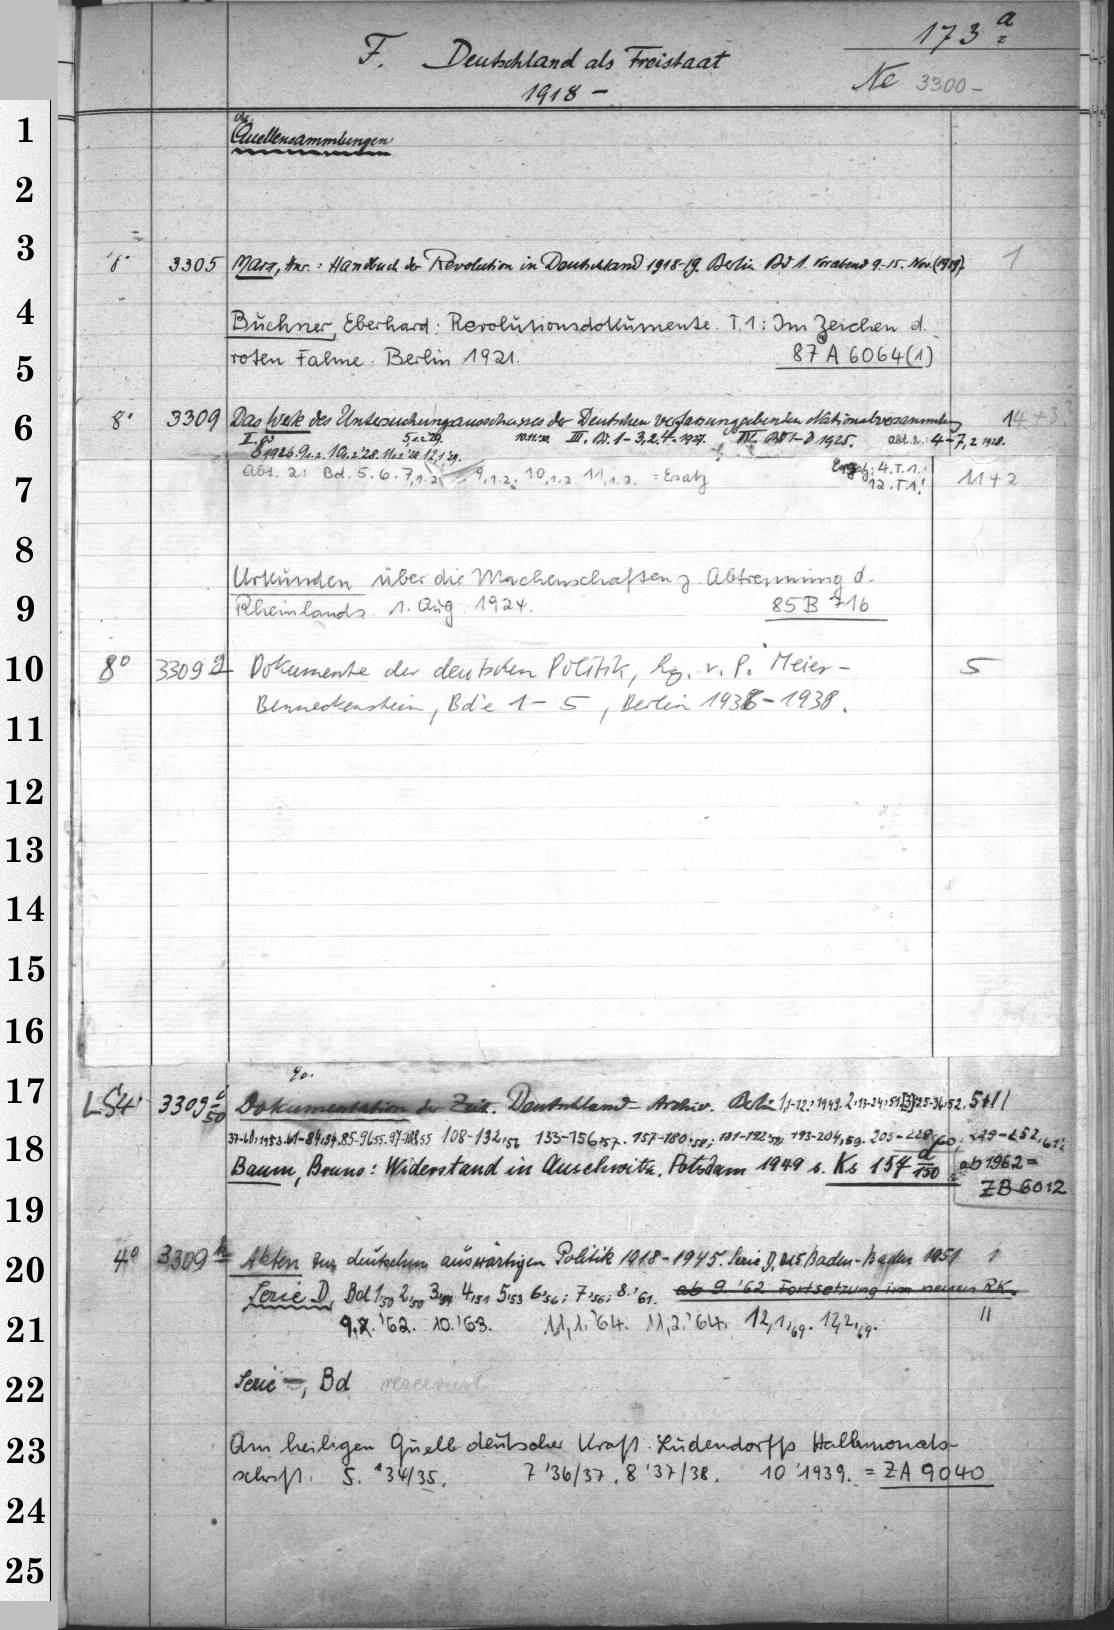 173 a
F. Deutschland als Freistaat
1918 –
Ne 3300 –
1
Quellensammlungen
2
3
8° 3305 Marx, Hnr.: Handbuch der Revolution in Deutschland 1918-19. Berlin Bd 1. Vorabend 9.-15. Nov. (1919). 1
4
Buchner, Eberhard: Revolutionsdokumente. T.1: Im Zeichen d.
5
roten Fahne. Berlin 1921. 87 A 6064(1)
6
8° 3309 Das Werk des Untersuchungsausschusses der Deutschen verfassunggebenden Nationalversammlung 14+3
III. Bd. 1-3, 2,4. 1927. IV. Bd 1-8 1925. 4-7,2 1928.
7
Abt. 2: Bd. 5. 6. 7,1.2 9,1.2. 10,1.2 11,1.2. = Ersatz 4.T.1.! 11+2
12.T.1!
8
Urkunden über die Machenschaften z. Abtrennung d.
9
Rheinlands 1. Aug. 1924. 85 B 716
10
8° 3309 g Dokumente der deutschen Politik, hg. v. P. Meier-
Benneckenstein, Bde 1 – 5, Berlin 1938. 5
11
12
13
14
15
16
17
40.
LS4° 3309 i/50 Dokumentation der Zeit. Deutschland-Archiv. Berlin 5+11
18
108-132,56 133-156,57. 157-180,58; 193-204,59. 205-228,60.
Baum, Bruno: Widerstand in Auschwitz. Potsdam 1949 s. Ks 154 d/150 ab 1962 =
19
ZB 6012
20
4° 3309 k Akten zur deutschen auswärtigen Politik 1918-1945. Serie D, Baden-Baden 1951 1
Serie D Bd 1,50 2,50 3,51 4,51 5,53 6,56; 7,56; 8.'61. ab 9. '62 Fortsetzung im neuen RK. 11
21
9.'62. 10.'63. 11,1.'64. 11,2.'64. 12,1,69. 12,2,69.
22
Serie –, Bd
23
Am heiligen Quell deutscher Kraft. Ludendorffs Halbmonats-
schrift. 5. '34/35. 7 '36/37. 8 '37/38. 10 '1939. = ZA 9040
24
25